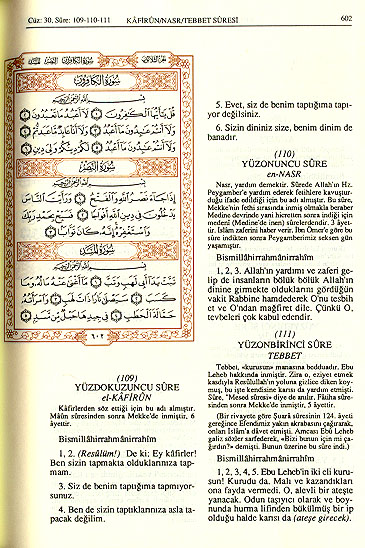 Cüz: 30, Sûre: 109-110-111 KÂFİRÛN/NASR/TEBBET SÛRESİ 602
سورة الكافرون
قُلْ يَا أَيُّهَا الْكَافِرُونَ لَا أَعْبُدُ مَا تَعْبُدُونَ
وَلَا أَنْتُمْ عَابِدُونَ مَا أَعْبُدُ وَلَا أَنَا عَابِدٌ مَا عَبَدْتُمْ
وَلَا أَنْتُمْ عَابِدُونَ مَا أَعْبُدُ لَكُمْ دِينُكُمْ وَلِيَ دِينِ
سورة النصر
إِذَا جَاءَ نَصْرُ اللَّهِ وَالْفَتْحُ وَرَأَيْتَ النَّاسَ
يَدْخُلُونَ فِي دِينِ اللَّهِ أَفْوَاجًا فَسَبِّحْ بِحَمْدِ رَبِّكَ
وَاسْتَغْفِرْهُ إِنَّهُ كَانَ تَوَّابًا
تَبَّتْ يَدَا أَبِي لَهَبٍ وَتَبَّ مَا أَغْنَى عَنْهُ مَالُهُ وَمَا
كَسَبَ سَيَصْلَى نَارًا ذَاتَ لَهَبٍ وَامْرَأَتُهُ
حَمَّالَةَ الْحَطَبِ فِي جِيدِهَا حَبْلٌ مِنْ مَسَدٍ
٦٠٢
(109)
YÜZDOKUZUNCU SÛRE
el-KÂFİRÛN
Kâfirlerden söz ettiği için bu adı almıştır.
Mâûn sûresinden sonra Mekke'de inmiştir, 6
âyettir.
Bismillâhirrahmânirrahîm
1, 2. (Resûlüm!) De ki: Ey kâfirler!
Ben sizin tapmakta olduklarınıza tap-
mam.
3. Siz de benim taptığıma tapmıyor-
sunuz.
4. Ben de sizin taptıklarınıza asla ta-
pacak değilim.
5. Evet, siz de benim taptığıma tapı-
yor değilsiniz.
6. Sizin dininiz size, benim dinim de
banadır.
(110)
YÜZONUNCU SÛRE
en-NASR
Nasr, yardım demektir. Sûrede Allah'ın Hz.
Peygamber'e yardım ederek fetihlere kavuştur-
duğu ifade edildiği için bu adı almıştır. Bu sûre,
Mekke'nin fethi sırasında inmiş olmakla beraber
Medine devrinde yani hicretten sonra indiği için
medenî (Medine'de inen) sûrelerdendir. 3 âyet-
tir. İslâm zaferini haber verir. İbn Ömer'e göre bu
sûre indikten sonra Peygamberimiz seksen gün
yaşamıştır.
Bismillâhirrahmânirrahîm
1, 2, 3. Allah'ın yardımı ve zaferi ge-
lip de insanların bölük bölük Allah'ın
dinine girmekte olduklarını gördüğün
vakit Rabbine hamdederek O'nu tesbih
et ve O'ndan mağfiret dile. Çünkü O,
tevbeleri çok kabul edendir.
(111)
YÜZONBİRİNCİ SÛRE
TEBBET
Tebbet, «kurusun» manasına bedduadır. Ebu
Leheb hakkında inmiştir. Zira o, eziyet etmek
kasdıyla Resûlullah'ın yoluna gizlice diken koy-
muş, bu işte kendisine karısı da yardım etmişti.
Sûre, "Mesed sûresi» diye de anılır. Fâtiha sûre-
sinden sonra Mekke'de inmiştir, 5 âyettir.
(Bir rivayete göre Şuarâ sûresinin 124. âyeti
gereğince Efendimiz yakın akrabasını çağırarak,
onları İslâm'a dâvet etmişti. Amcası Ebu Leheb
galiz sözler sarfederek, «Bizi bunun için mi ça-
ğırdın?» demişti. Bunun üzerine bu sûre indi.)
Bismillâhirrahmânirrahîm
1, 2, 3, 4, 5. Ebu Leheb'in iki eli kuru-
sun! Kurudu da. Malı ve kazandıkları
ona fayda vermedi. O, alevli bir ateşte
yanacak. Odun taşıyıcı olarak ve boy-
nunda hurma lifinden bükülmüş bir ip
olduğu halde karısı da (ateşe girecek).